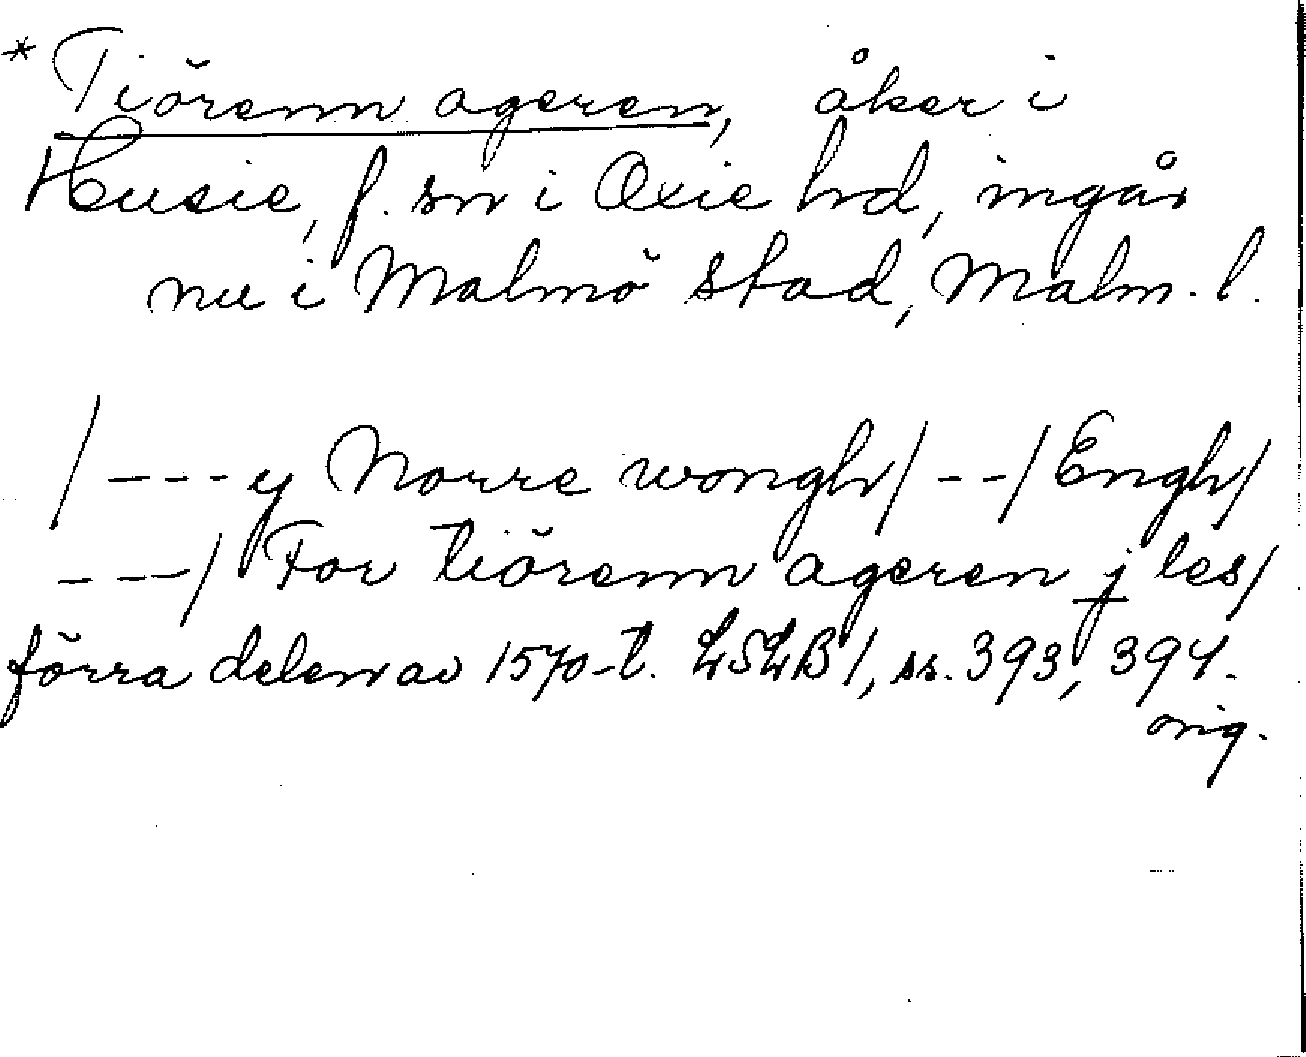 * Tiörenn ageren, åker i
Husie, f. sn i Oxie hd, ingår
nu i Malmö stad, Malm. l.
/---y Norre wongh/--/Engh/
---/ For tiörenn ageren j les/
förra delen av 1570-t. LSLB 1, ss. 393, 394.
orig.